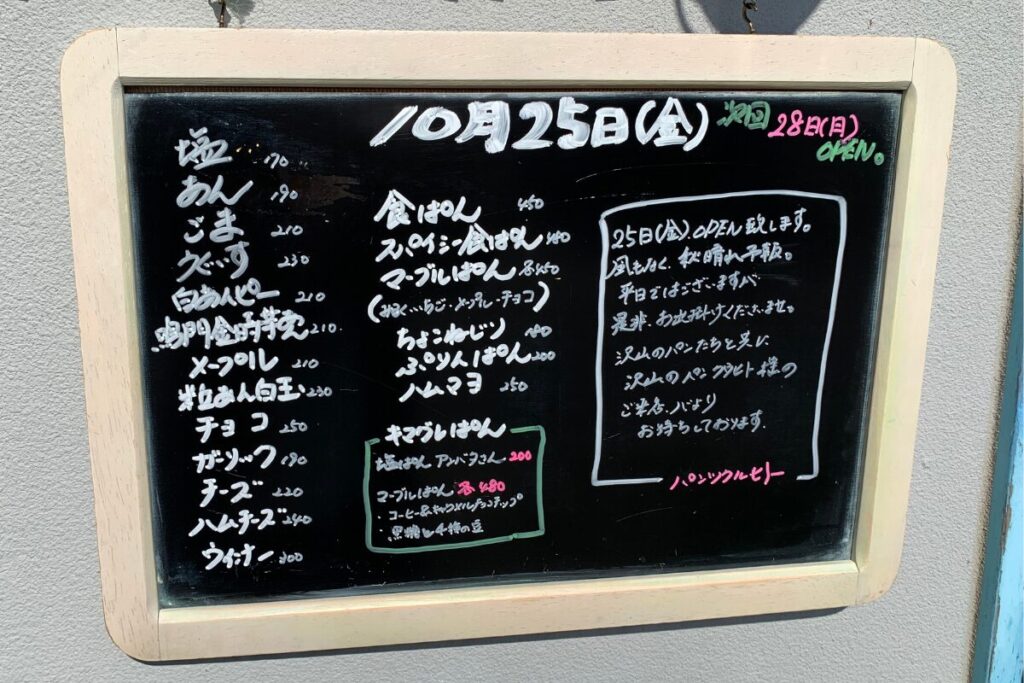 10月25日(金)
次回 28日(月)
OPEN。
塩 170
あん 190
ごま 210
うぐいす 230
白あんピー 210
鳴門金時芋売 210
メープル 210
粒あん白玉 230
チョコ 250
ガーリック 190
チーズ 220
ハムチーズ 240
ウィンナー 300
食ぱん 450
スパイシー食ぱん 480
マーブルぱん 各450
(みるく・いちご・メープル・チョコ)
ちょこねじり 180
ぷりんぱん 200
ハムマヨ 250
キマグレぱん
塩ぱん アンバタさん 200
マーブルぱん 各480
コーヒー&キャラメルチョコチップ
黒糖と4種の豆
25日(金)、OPEN致します。
風もなく、秋晴れ予報。
平日ではございますが
是非、お出掛けくださいませ。
沢山のパンたちと共に
沢山のパンクタビト様の
ご来店、心より
お待ちしております。
パンツクルヒト